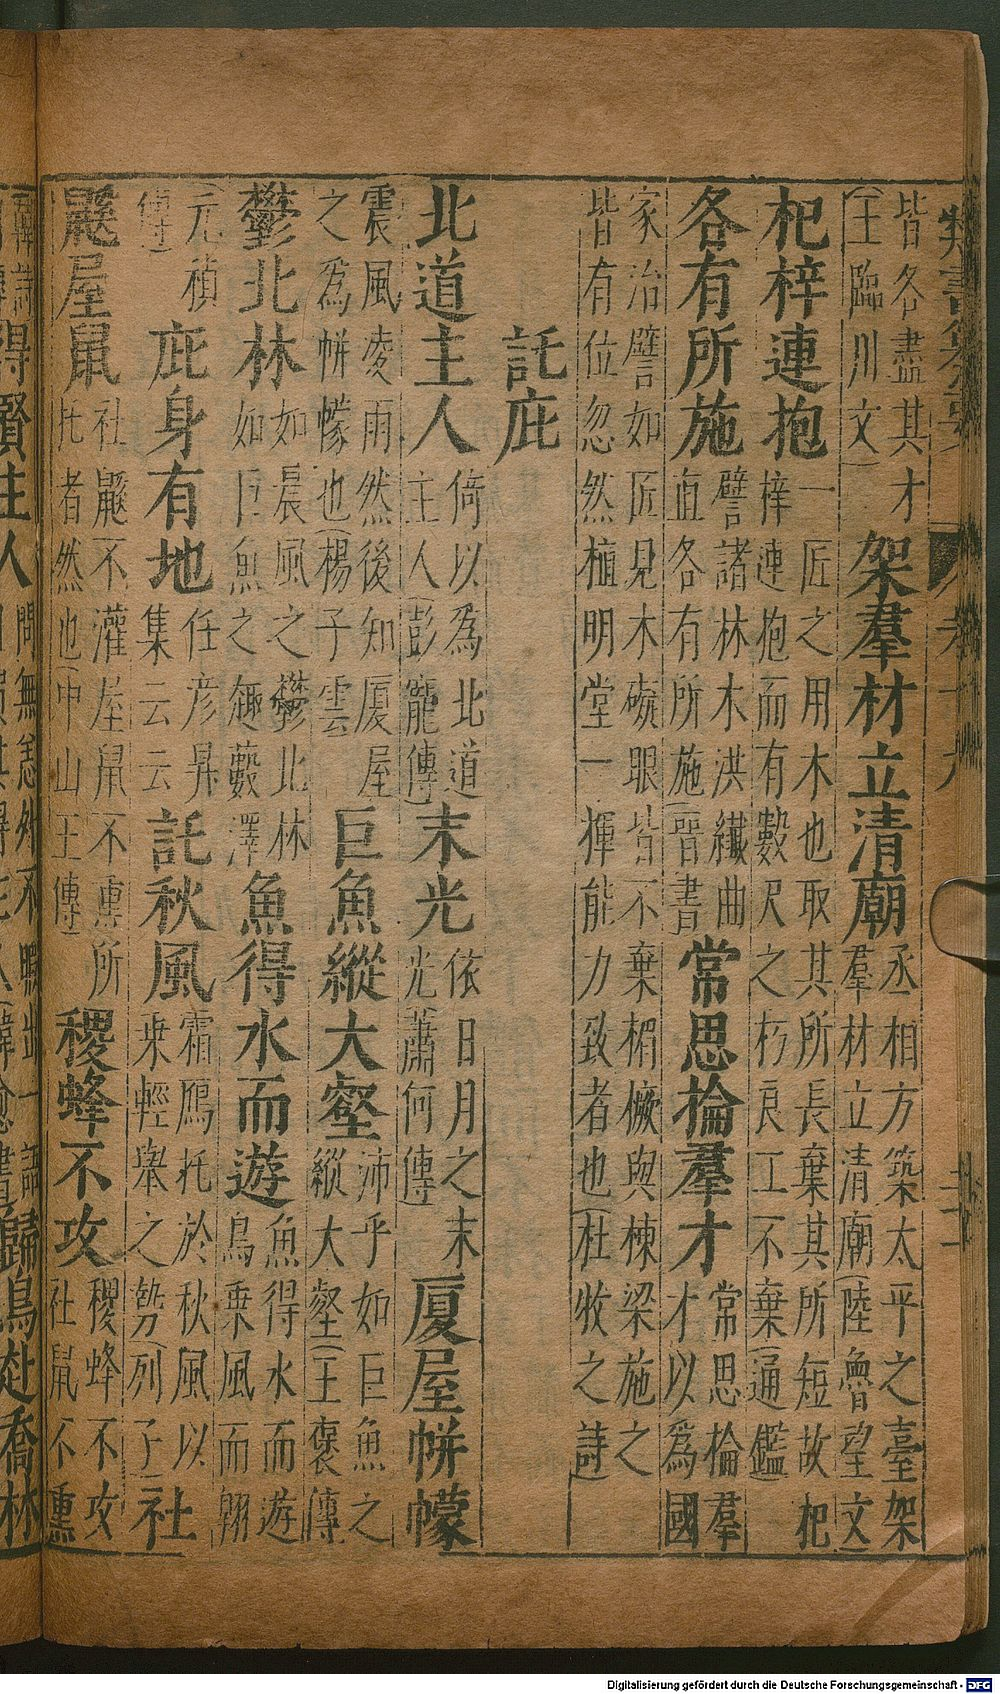 皆各盡其才(王臨川文)架羣材立清廟丞相方築太平之臺架羣材立清廟(陸魯望文)
杞梓連抱一匠之用木也取其所長棄其所短故杞梓連抱而有數尺之朽良工不棄(通鑑)
各有所施譬諸林木洪纖曲直各有所施(晉書)常思掄羣才常思掄羣才以爲國
家治譬如匠見木礙眼皆不棄楣橛與棟梁施之皆有位忽然植明堂一揮能力致者也(杜牧之詩)
託庇
北道主人倚以爲北道主人(彭寵傳)末光依日月之末光(蕭何傳)厦屋帡幪
震風凌雨然後知厦屋之爲帡幪也(楊子雲)巨魚縱大壑沛乎如巨魚之縱大壑(王褒傳)
鬱北林如晨風之鬱北林如巨魚之趣藪澤魚得水而遊魚得水而遊鳥乗風而翔
元禎傳)庇身有地任彦昇集云云託秋風霜鴈托於秋風以乗輕舉之勢(列子)社
鼷屋鼠社鼷不灌屋鼠不熏所托者然也(中山王傳)稷蜂不攻稷蜂不攻社鼠不熏
得賢主人問無恙外不暇出一語歸鳥赴喬林
Digitalisierung gefördert durch die Deutsche Forschungsgemeinschaft - DFG